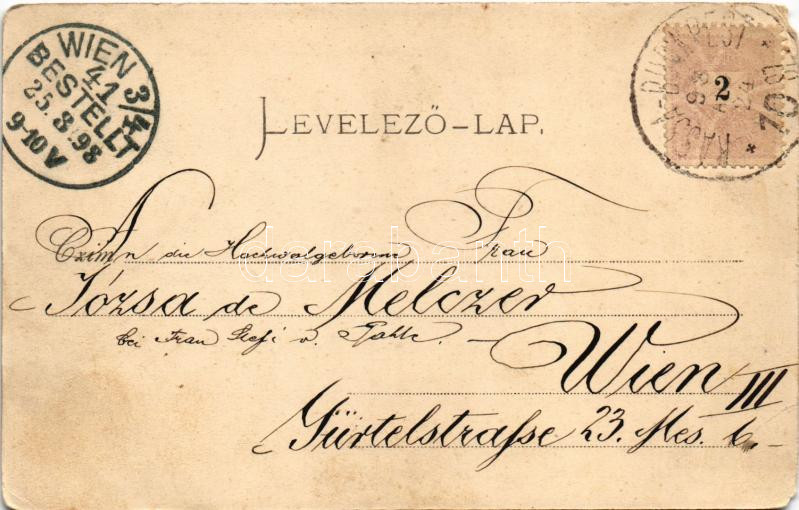 WIEN 3/4
41
BESTELLT
25.8.98
9-10V
KASSA-BUDAPEST
2
98
24
10
LEVELEZŐ-LAP.
An die Hochwolgeborene Frau
Józsa de Melczer
bei Frau v.
Wien III
Gürtelstraſse 23. Mes. 6.
darabanth